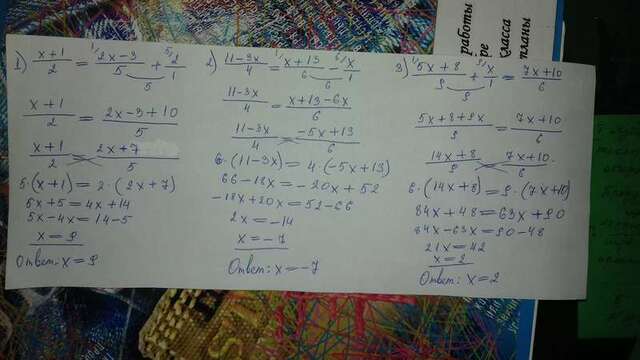 1) x+1/2 = 2x-3/5 + 2/1
x+1/2 = 2x-3+10/5
x+1/2 = 2x+7/5
5·(x+1)=2·(2x+7)
5x+5=4x+14
5x-4x=14-5
x=9
Ответ: x=9
2) 11-3x/4 = x+13/6 - x/1
11-3x/4 = x+13-6x/6
11-3x/4 = -5x+13/6
6·(11-3x)=4(-5x+13)
66-18x=-20x+52
-18x+20x=52-66
2x=-14
x=-7
Ответ: x=-7
3) 5x+8/9 + x/1 = 7x+10/6
5x+8+9x/9 = 7x+10/6
14x+8/9 = 7x+10/6
6·(14x+8)=9·(7x+10)
84x+48=63x+90
84x-63x=90-48
21x=42
x=2
Ответ: x=2
работы
ре
класса
планы